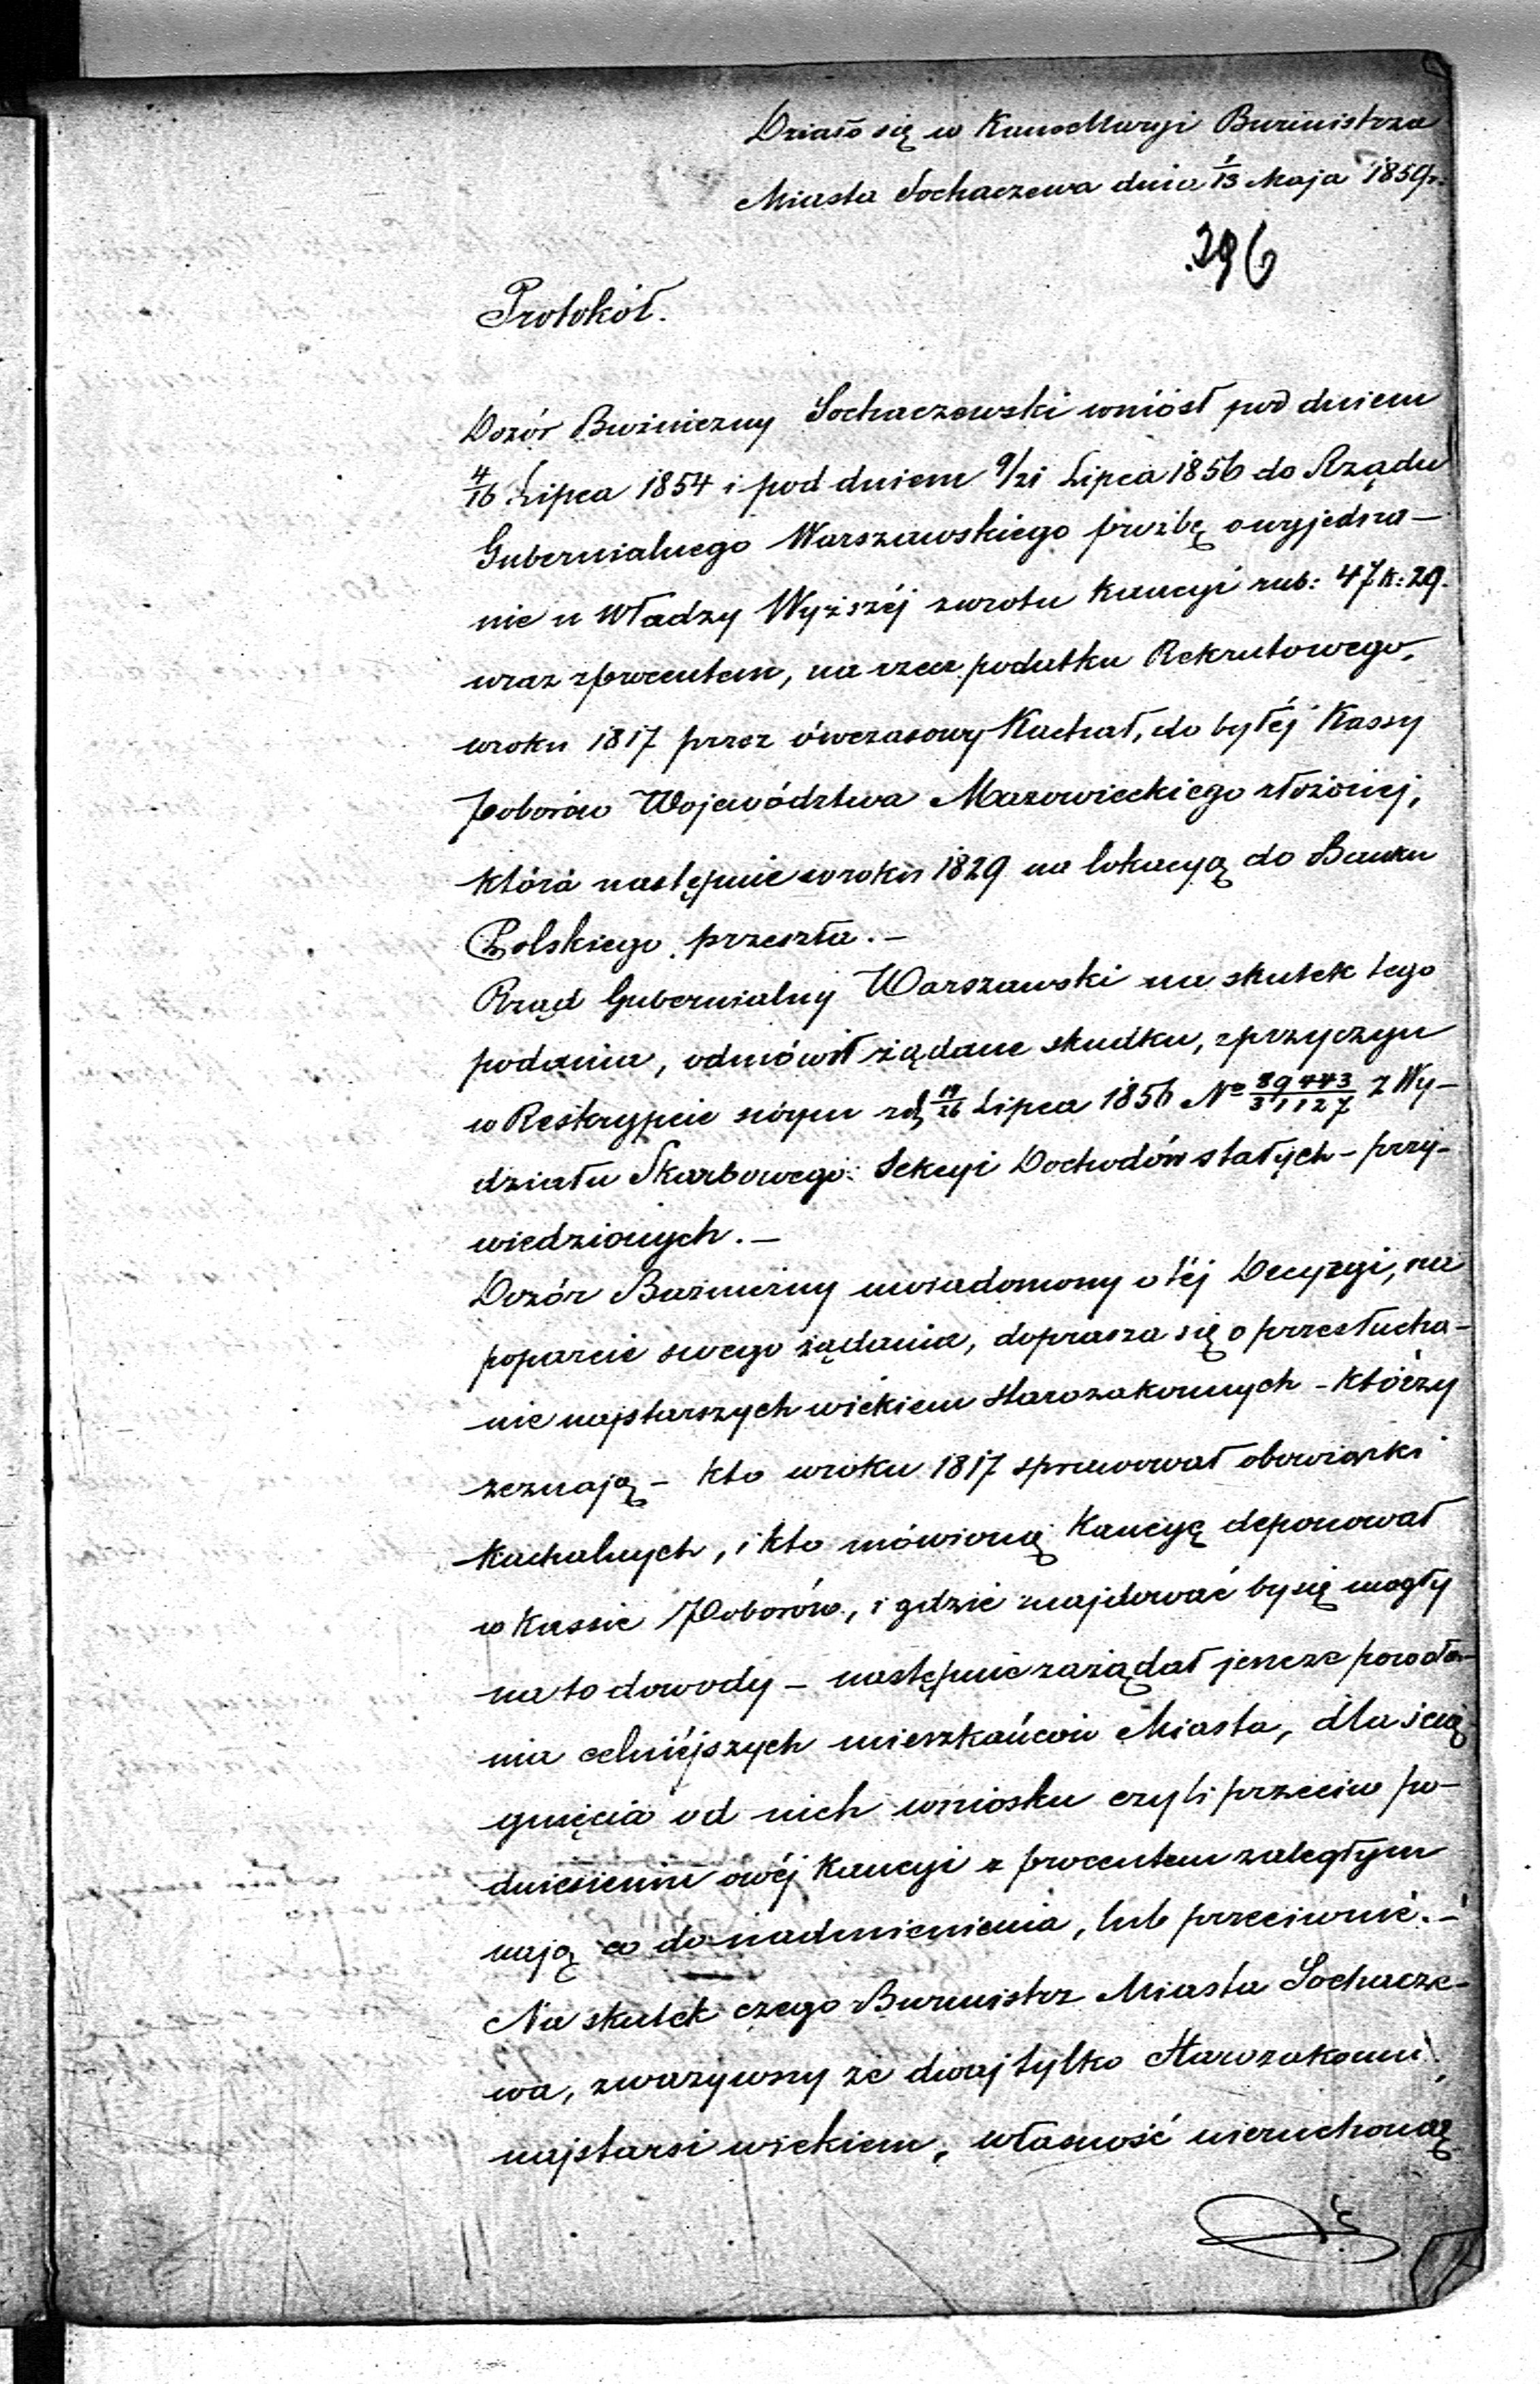 Działo się w Kancellaryi Burmistrza
Miasta Sochaczewa dnia 1/13 Maja 1859r.
296
Protokół.
Dozór Bużniczny Sochaczewski wniósł pod dniem
4/16 Lipca 1854 i pod dniem 9/21 Lipca 1856 do Rządu
Gubernialnego Warszawskiego proźbę o wyjedna-
nie u Władzy Wyższéj zwrotu Kaucyi rub: 47 k: 29.
wraz z procentem, na rzecz podatku Rekrutowego,
w roku 1817 przez ówczasowy Kachał, do byłéj Kassy
Poborów Województwa Mazowieckiego złożonej,
która następnie w roku 1829 na lokacyą do Banku
Polskiego przeszła.-
Rząd Gubernialny Warszawski na skutek tego
podania, odmówił żądane skudku, z przyczyn
w Reskrypcie swoym z d. 14/26 Lipca 1856 No 89443/31127 z Wy-
działu Skarbowego: Sekcyi Dochodów stałych - przy-
wiedzionych.-
Dozór Bużniczny uwiadomony o téj Decyzyi, na
poparcie swego żądania, doprasza się o przesłucha-
nie najstarszych wiekiem Starozakonnych - którzy
zeznają - kto w roku 1817 sprawował obowiązki
Kachalnych, i kto mówioną Kaucyę deponował
w Kassie Poborów, i gdzie znajdować by się mogły
na to dowody - następnie zażądał jeszcze powoła-
nia celniéjszych mieszkańców Miasta, dla ścią-
gnięcia od nich wniosku czyli przeciw po-
dniesieniu owéj Kaucyi z procentem zaległym
mają co do nadmienienia, lub przeciwnie.-
Na skutek czego Burmistrz Miasta Sochacze-
wa, zważywszy że dwaj tylko Starozakonni,
najstarsi wiekiem, własność nieruchomą